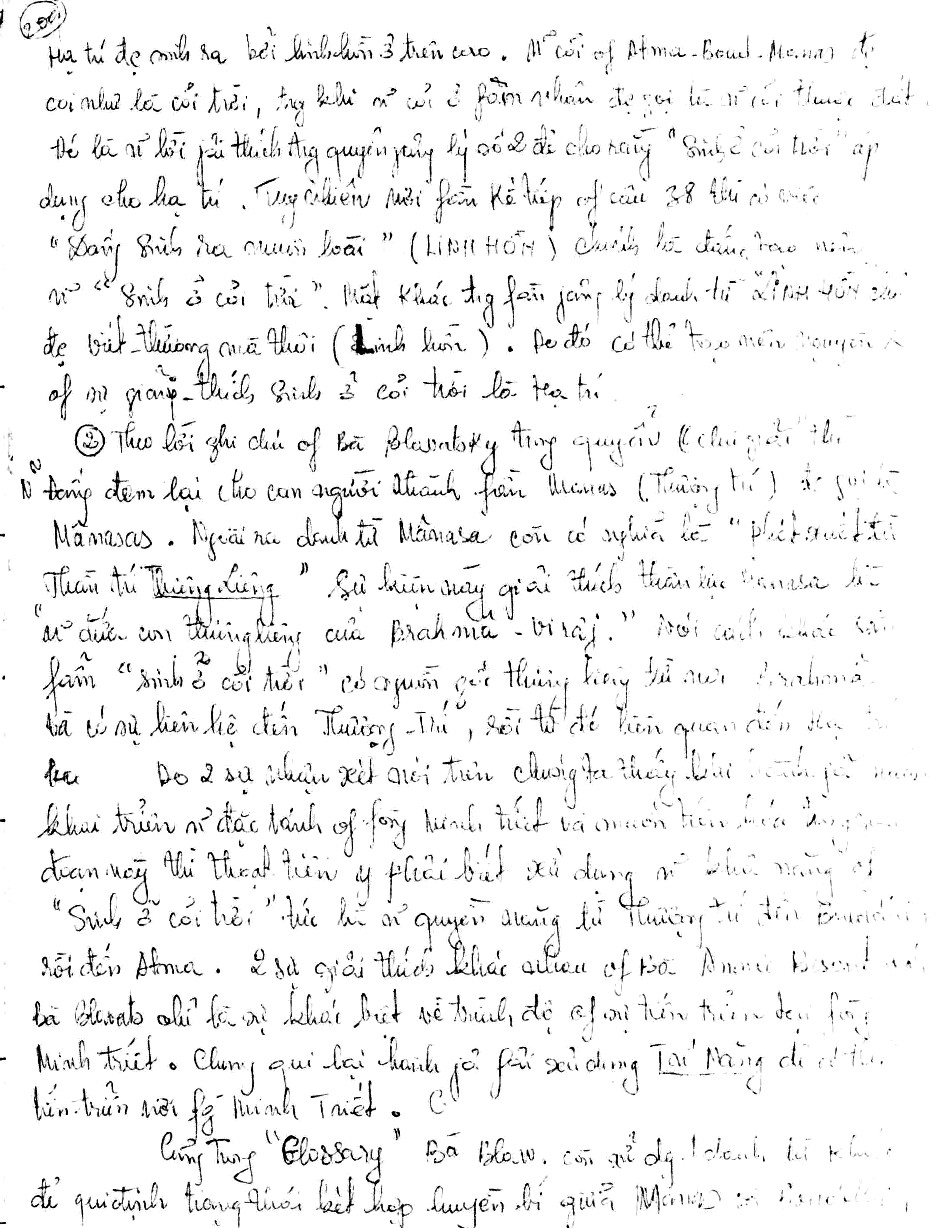 200.
Hạ trí đc sinh ra bởi linh hồn ở trên cao. N~ cõi of Atma-Boud-Manas đc
coi như là cõi trời, trg khi n~ cõi ở fàm nhân đc gọi là n~ cõi thuộc đất.
Đó là n~ lời jải thích trg quyển jảng lý số 2 đã cho rằng "Sinh ở cõi trời" áp
dụng cho hạ trí. Tuy nhiên nơi fần kế tiếp of câu 38 thì có
"Đấng Sinh ra muôn loài" (LINH HỒN) chính là đấng tạo nên
n~ "Sinh ở cõi trời". Mặt khác trg fần jảng lý danh từ LINH HỒN
đc viết thường mà thôi (Linh hồn). Do đó có thể tạo nên nguyên
of sự giảng-thích Sinh ở cõi trời là Hạ trí
② Theo lời ghi chú of Bà Blavatsky trong quyển
N~ Đấng đem lại cho con người thành fần Manas (Thượng trí) đc gọi là
Mânasas. Ngoài ra danh từ Mânasa còn có nghĩa là "phát xuất từ
Thần trí Thiêng Liêng" Sự kiện này giải thích thần lực Manasa là
"n~ đứa con thiêng liêng của Brahmâ-Viraj." Nói cách khác
fẩm "sinh ở cõi trời" có nguồn gốc thiêng liêng từ nơi Brahmâ
và có sự liên hệ đến Thượng-Trí, rồi từ đó liên quan đến Hạ trí
Do 2 sự nhận xét nói trên chúng ta thấy khi hành jả muốn
khai triển n~ đặc tánh of fòng Minh triết và muốn tiến hóa
đoạn này thì thoạt tiên y phải biết xử dụng n~ khả năng of
"Sinh ở cõi trời" tức là n~ quyền năng từ Thượng trí đến
rồi đến Atma. 2 sự giải thích khác nhau of Bà Annie Besant
bà Blavats chỉ là sự khác biệt về trình độ of sự tiến triển tại fòng
Minh triết. Chung qui lại hành jả fải xử dụng Trí Năng để có thể
tiến-triển nơi fg Minh Triết.
Cũng trong "Glossary" Bà Blav. còn xử dg 1 danh từ khác
để qui định trạng thái kết hợp huyền bí giữa (Manas)